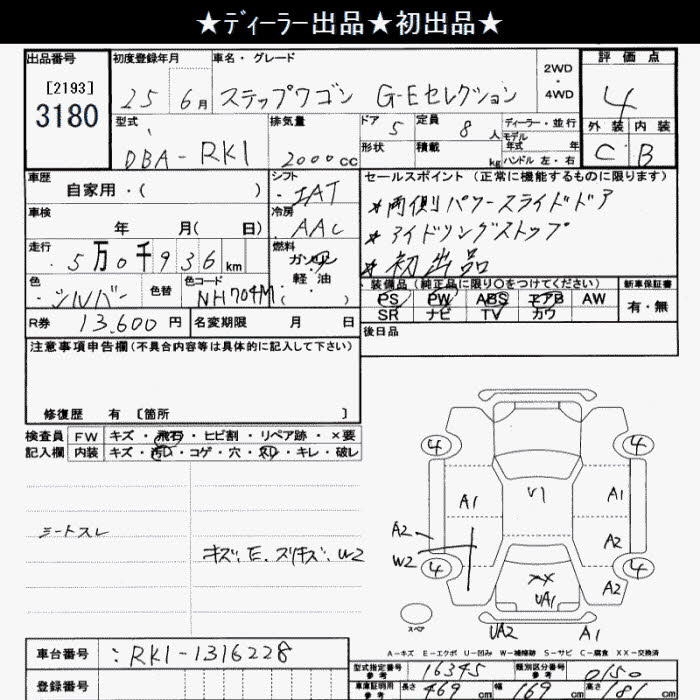 ★ディーラー出品★初出品★
出品番号 初度登録年月 車名・グレード 2WD・4WD 評価点
[2193] 3180 25 6月 ステップワゴン G-Eセレクション 4
型式 排気量 ドア 5 定員 8人 ディーラー・並行 外装 内装
DBA-RK1 2000cc 形状 積載 kg モデル年式 年 ハンドル 左・右 C B
車歴 シフト セールスポイント (正常に機能するものに限ります)
自家用・( ) IAT
★両側パワースライドドア
車検 冷房
年 月( 日) AAC
★アイドリングストップ
走行 燃料
5万0千936km ガソリン 軽油 ( )
★初出品
色 色替 色コード 装備品(純正品に限り○をつけてください) 新車保証書
シルバー NH704M PS PW ABS エアB AW 有・無
SR ナビ TV カワ
R券 13,600円 名変期限 月 日 後日品
注意事項申告欄(不具合内容等は具体的に記入して下さい)
修復歴 有 [箇所 ]
検査員 FW キズ・飛石・ヒビ割・リペア跡・×要
記入欄 内装 キズ・汚レ・コゲ・穴・スレ・キレ・破レ
シートスレ
キズ、E、スリキズ、W2
4 4
A1 U1 A1
A2 A2
W2 4 4
XX UA1 A2
スペア UA2 A1
A-キズ E-エクボ U-凹み W-補修跡 S-サビ C-腐食 XX-交換済
車台番号 : RK1-1316228
登録番号
型式指定番号 参考 16345 類別区分番号 参考 0150
車庫証明用 参考 長さ 469 cm 幅 169 cm 高さ 181 cm